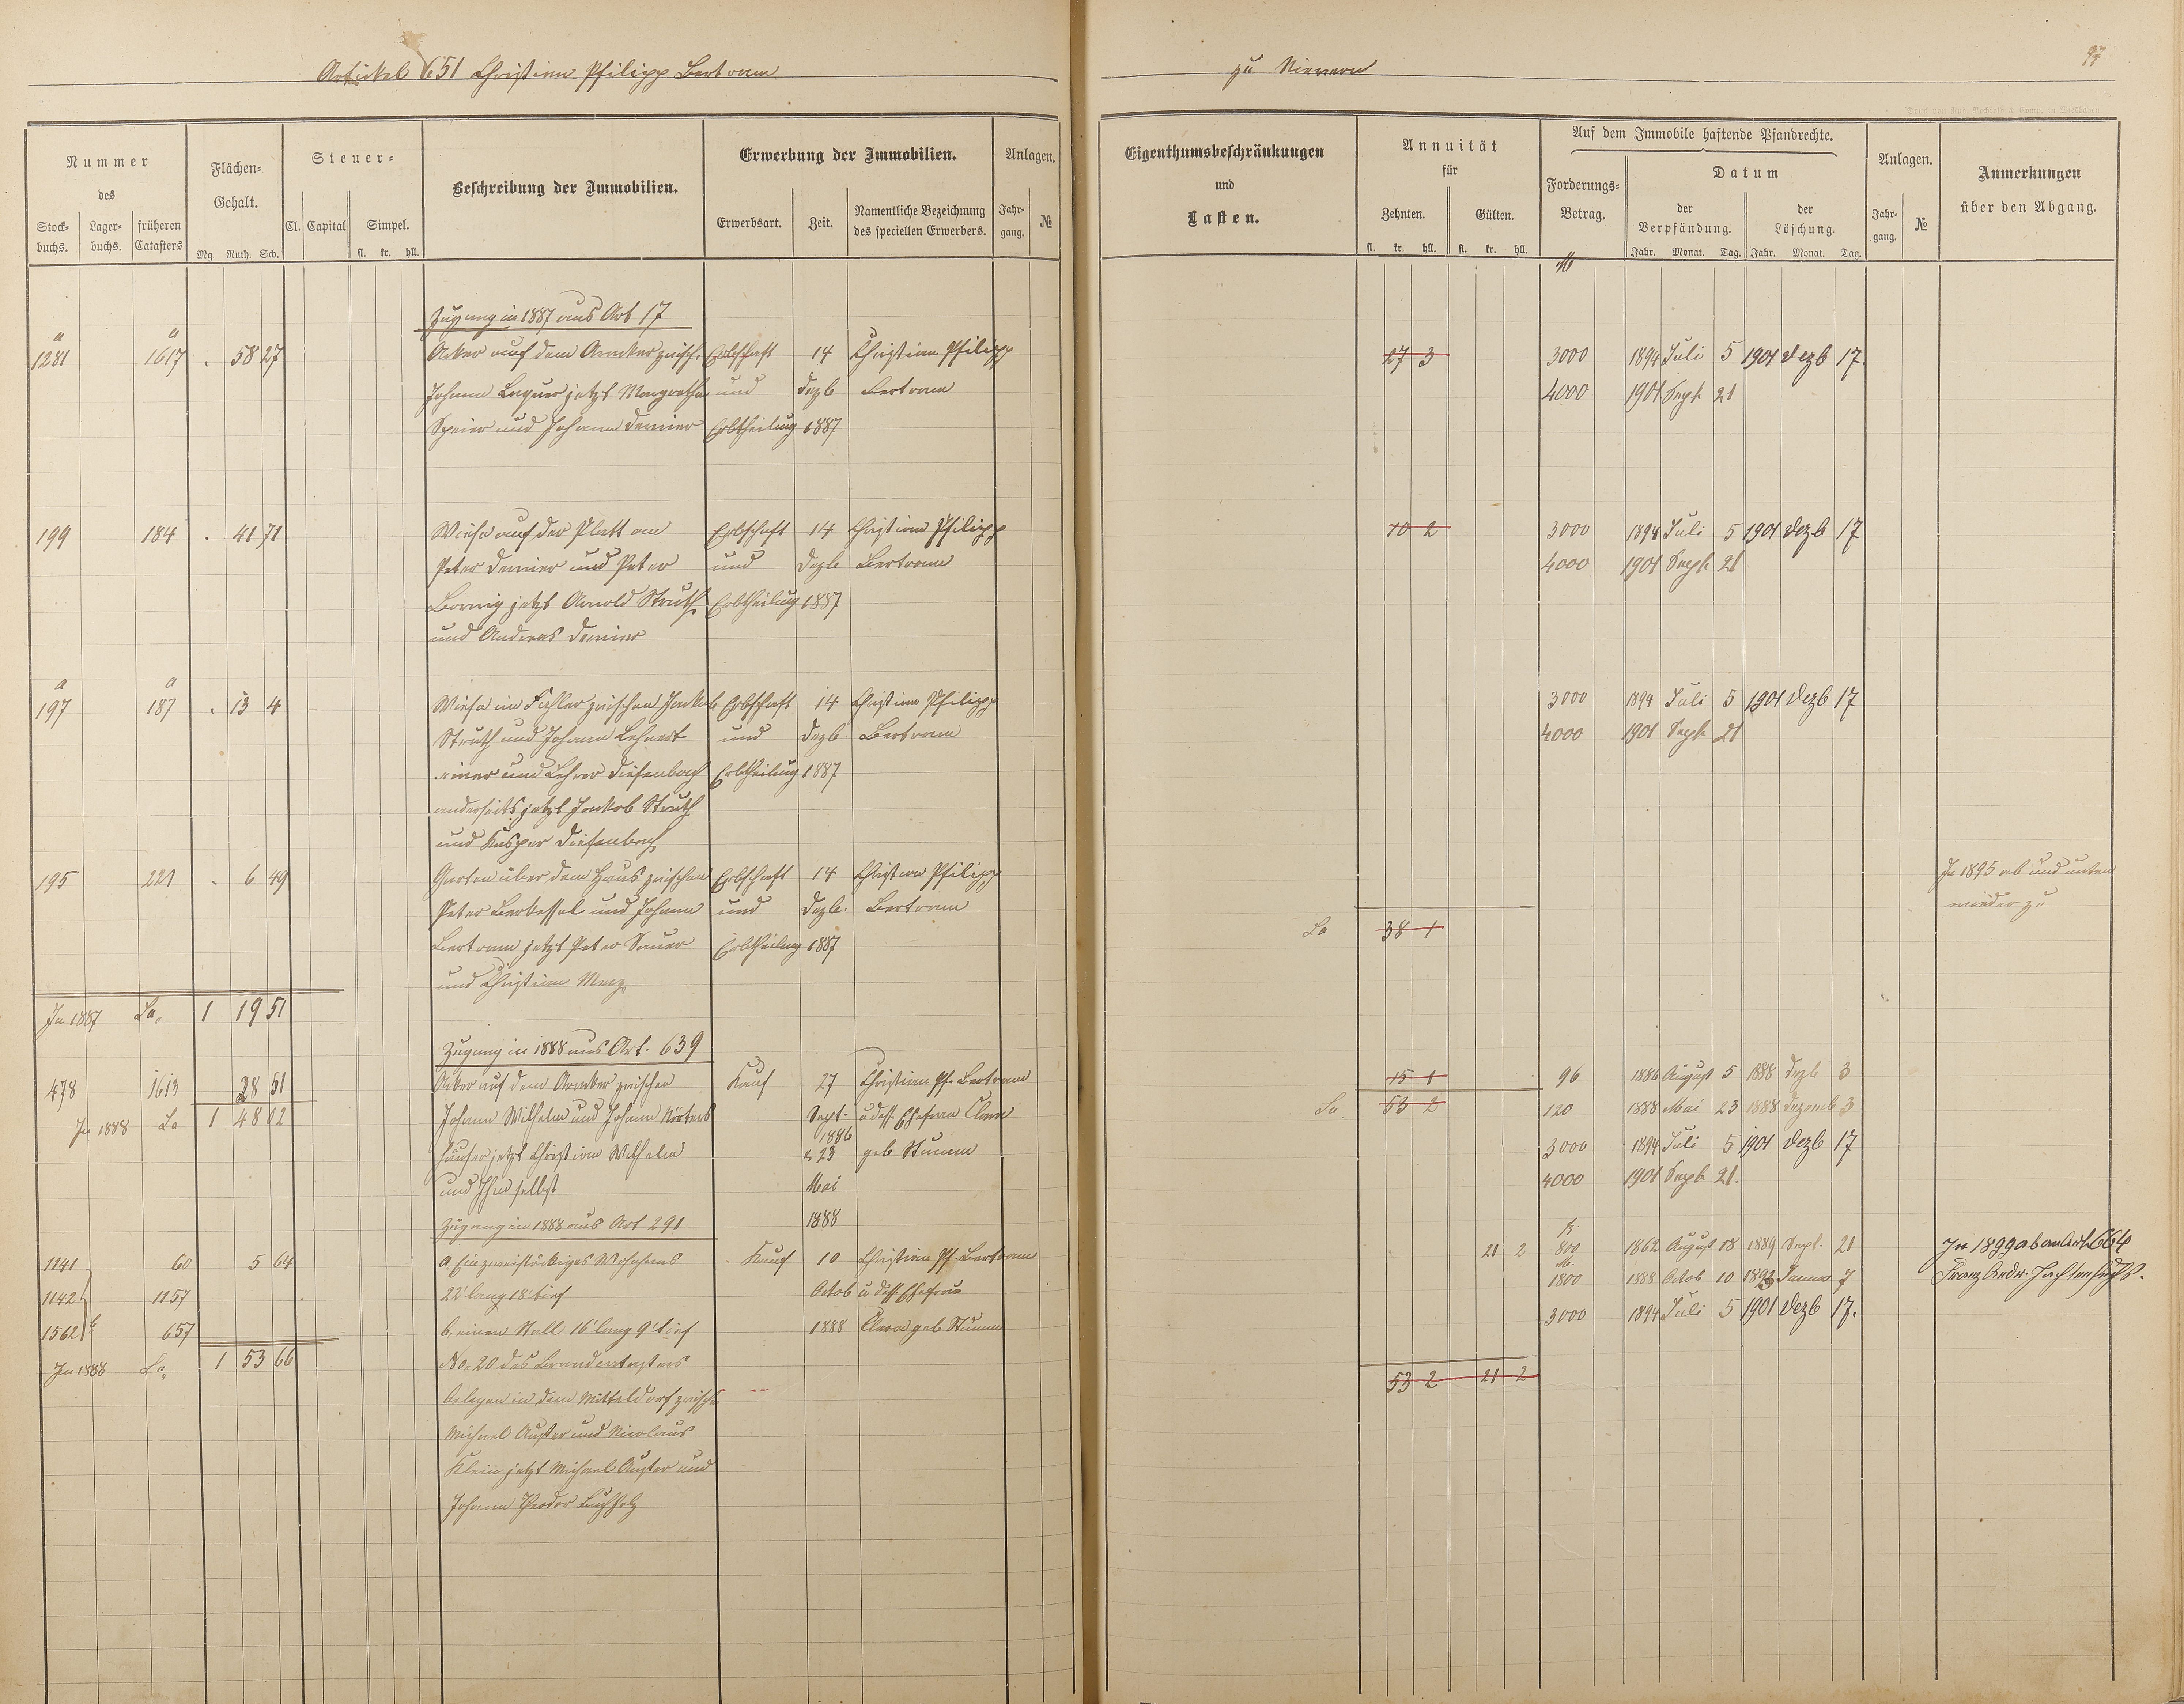 Artickel 651 Christian Philipp Bertram
zu Nievern
97
Nummer
des
Stock-
buchs.
Lager-
buchs.
früheren
Catasters
Flächen-
Gehalt.
Mg. Ruth. Sch.
Steuer-
Cl. Capital Simpel.
fl. kr. hll.
Beschreibung der Immobilien.
Erwerbung der Immobilien.
Erwerbsart. Zeit.
Namentliche Bezeichnung
des speciellen Erwerbers.
Anlagen.
Jahr-
gang.
№
Eigenthumsbeschränkungen
und
Lasten.
Annuität
für
Zehnten. Gülten.
fl. kr. hll. fl. kr. hll.
Auf dem Immobile haftende Pfandrechte.
Forderungs-
Betrag.
Datum
der
Verpfändung.
der
Löschung.
Jahr. Monat. Tag. Jahr. Monat. Tag.
Anlagen.
Jahr-
gang.
№
Anmerkungen
über den Abgang.
M
Zugang in 1887 aus Art 17
a a
1281 1617 . 58 27 Acker auf dem zwisch. Erbschaft 14 Christian Philipp 27 3 3000 1894 Juli 5 1901 Dezb 17.
Johann jetzt Margretha und Dezb Bertram 4000 1901 Sept 21
Speier und Johann Erbtheilung 1887
199 184 . 41 71 Wiese auf der Platt am Erbschaft 14 Christian Philipp 10 2 3000 1894 Juli 5 1901 Dezb 17
Peter und Peter und Dezb Bertram 4000 1901 Sept 21
Bornig jetzt Arnold Struth Erbtheilung 1887
und Andreas
a a
197 187 . 13 4 Wiese im zwischen Jakob Erbschaft 14 Christian Philipp 3000 1894 Juli 5 1901 Dezb 17
Struth und Johann Lehnert und Dezb. Bertram 4000 1901 Sept 21
einer und Lehrer Diefenbach Erbtheilung 1887
anderseits jetzt Jakob Struth
und Kaspar Diefenbach
195 221 . 6 49 Garten über dem Haus zwischen Erbschaft 14 Christian Philipp In 1895 ab und unten
Peter und Johann und Dezb. Bertram wieder zu
Bertram jetzt Peter Sauer Erbtheilung 1887 Sa 38 1
und Christian Merz
In 1887 Sa. 1 19 51
Zugang in 1888 aus Art. 639
478 1613 28 51 Acker auf dem zwischen Kauf 27 Christian Ph. Bertram 15 1 96 1886 August 5 1888 Dezb 3
In 1888 Sa 1 48 62 Johann Wilhelm und Johann Sept. u. dess. Ehefrau Clara Sa. 53 2 120 1888 Mai 23 1888 Dezemb 3
1886
häuser jetzt Christian Wilhelm & 23 geb Stumm 3000 1894 Juli 5 1901 Dezb 17
und Ihm selbst Mai 4000 1901 Sept 21.
Zugang in 1888 aus Art 291 1888
fl.
1141 60 5 64 a Ein zweistöckiges Wohnhaus Kauf 10 Christian Ph. Bertram 21 2 800 1862 August 18 1889 Sept. 21 In 1899 ab an Art. 664
M.
1142 1157 22' lang 18' tief Octob u. dess. Ehefrau 1800 1888 Octob 10 1893 Januar 7 Franz Andr.
1562 b 657 b, einen Stall 16' lang 9' tief 1888 Clara geb Stumm 3000 1894 Juli 5 1901 Dezb 17.
In 1888 Sa. 1 53 66 No. 20 des Brandcatasters
belegen in dem Mitteldorf zwischen 53 2 21 2
Michael Auster und Nicolaus
Klein jetzt Michael Auster und
Johann Theodor Buchholz